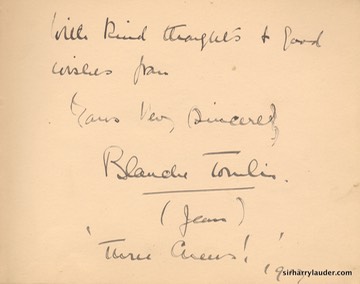 With kind thoughts & good
wishes from
Yours Very Sincerely
Blanche Tomlin.
(Jean)
"Three Cheers!"
sirharrylauder.com